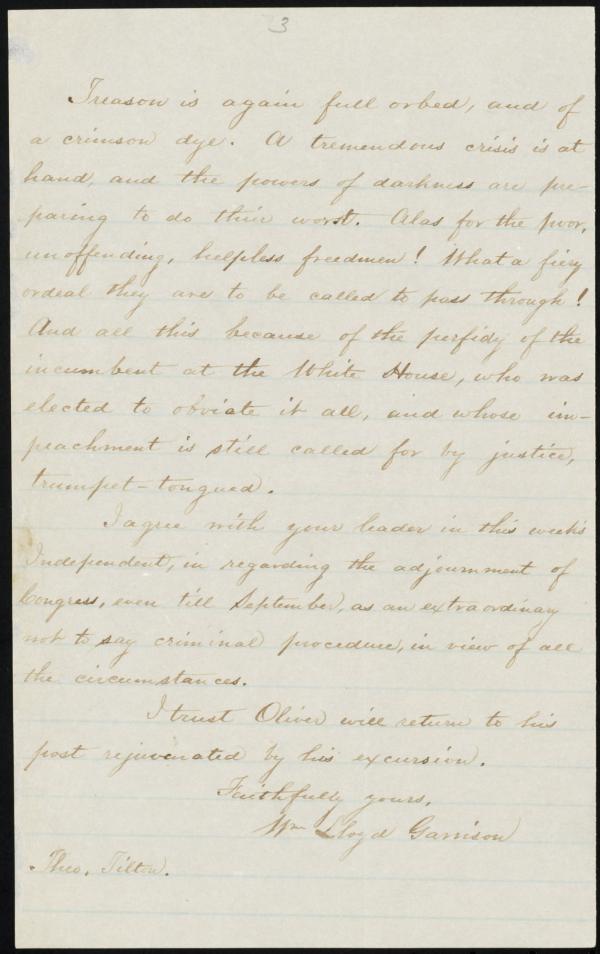 3
Treason is again full orbed, and of
a crimson dye. A tremendous crisis is at
hand, and the powers of darkness are pre-
paring to do their worst. Alas for the poor,
unoffending, helpless freedmen! What a fiery
ordeal they are to be called to pass through!
And all this because of the perfidy of the
incumbent at the White House, who was
elected to obviate it all, and whose im-
peachment is still called for by justice,
trumpet-tongued.
I agree with your leader in this week's
Independent, in regarding the adjournment of
Congress, even till September, as an extraordinary
not to say criminal procedure, in view of all
the circumstances.
I trust Oliver will return to his
post rejuvenated by his excursion.
Faithfully yours,
Wm Lloyd Garrison
Theo. Tilton.